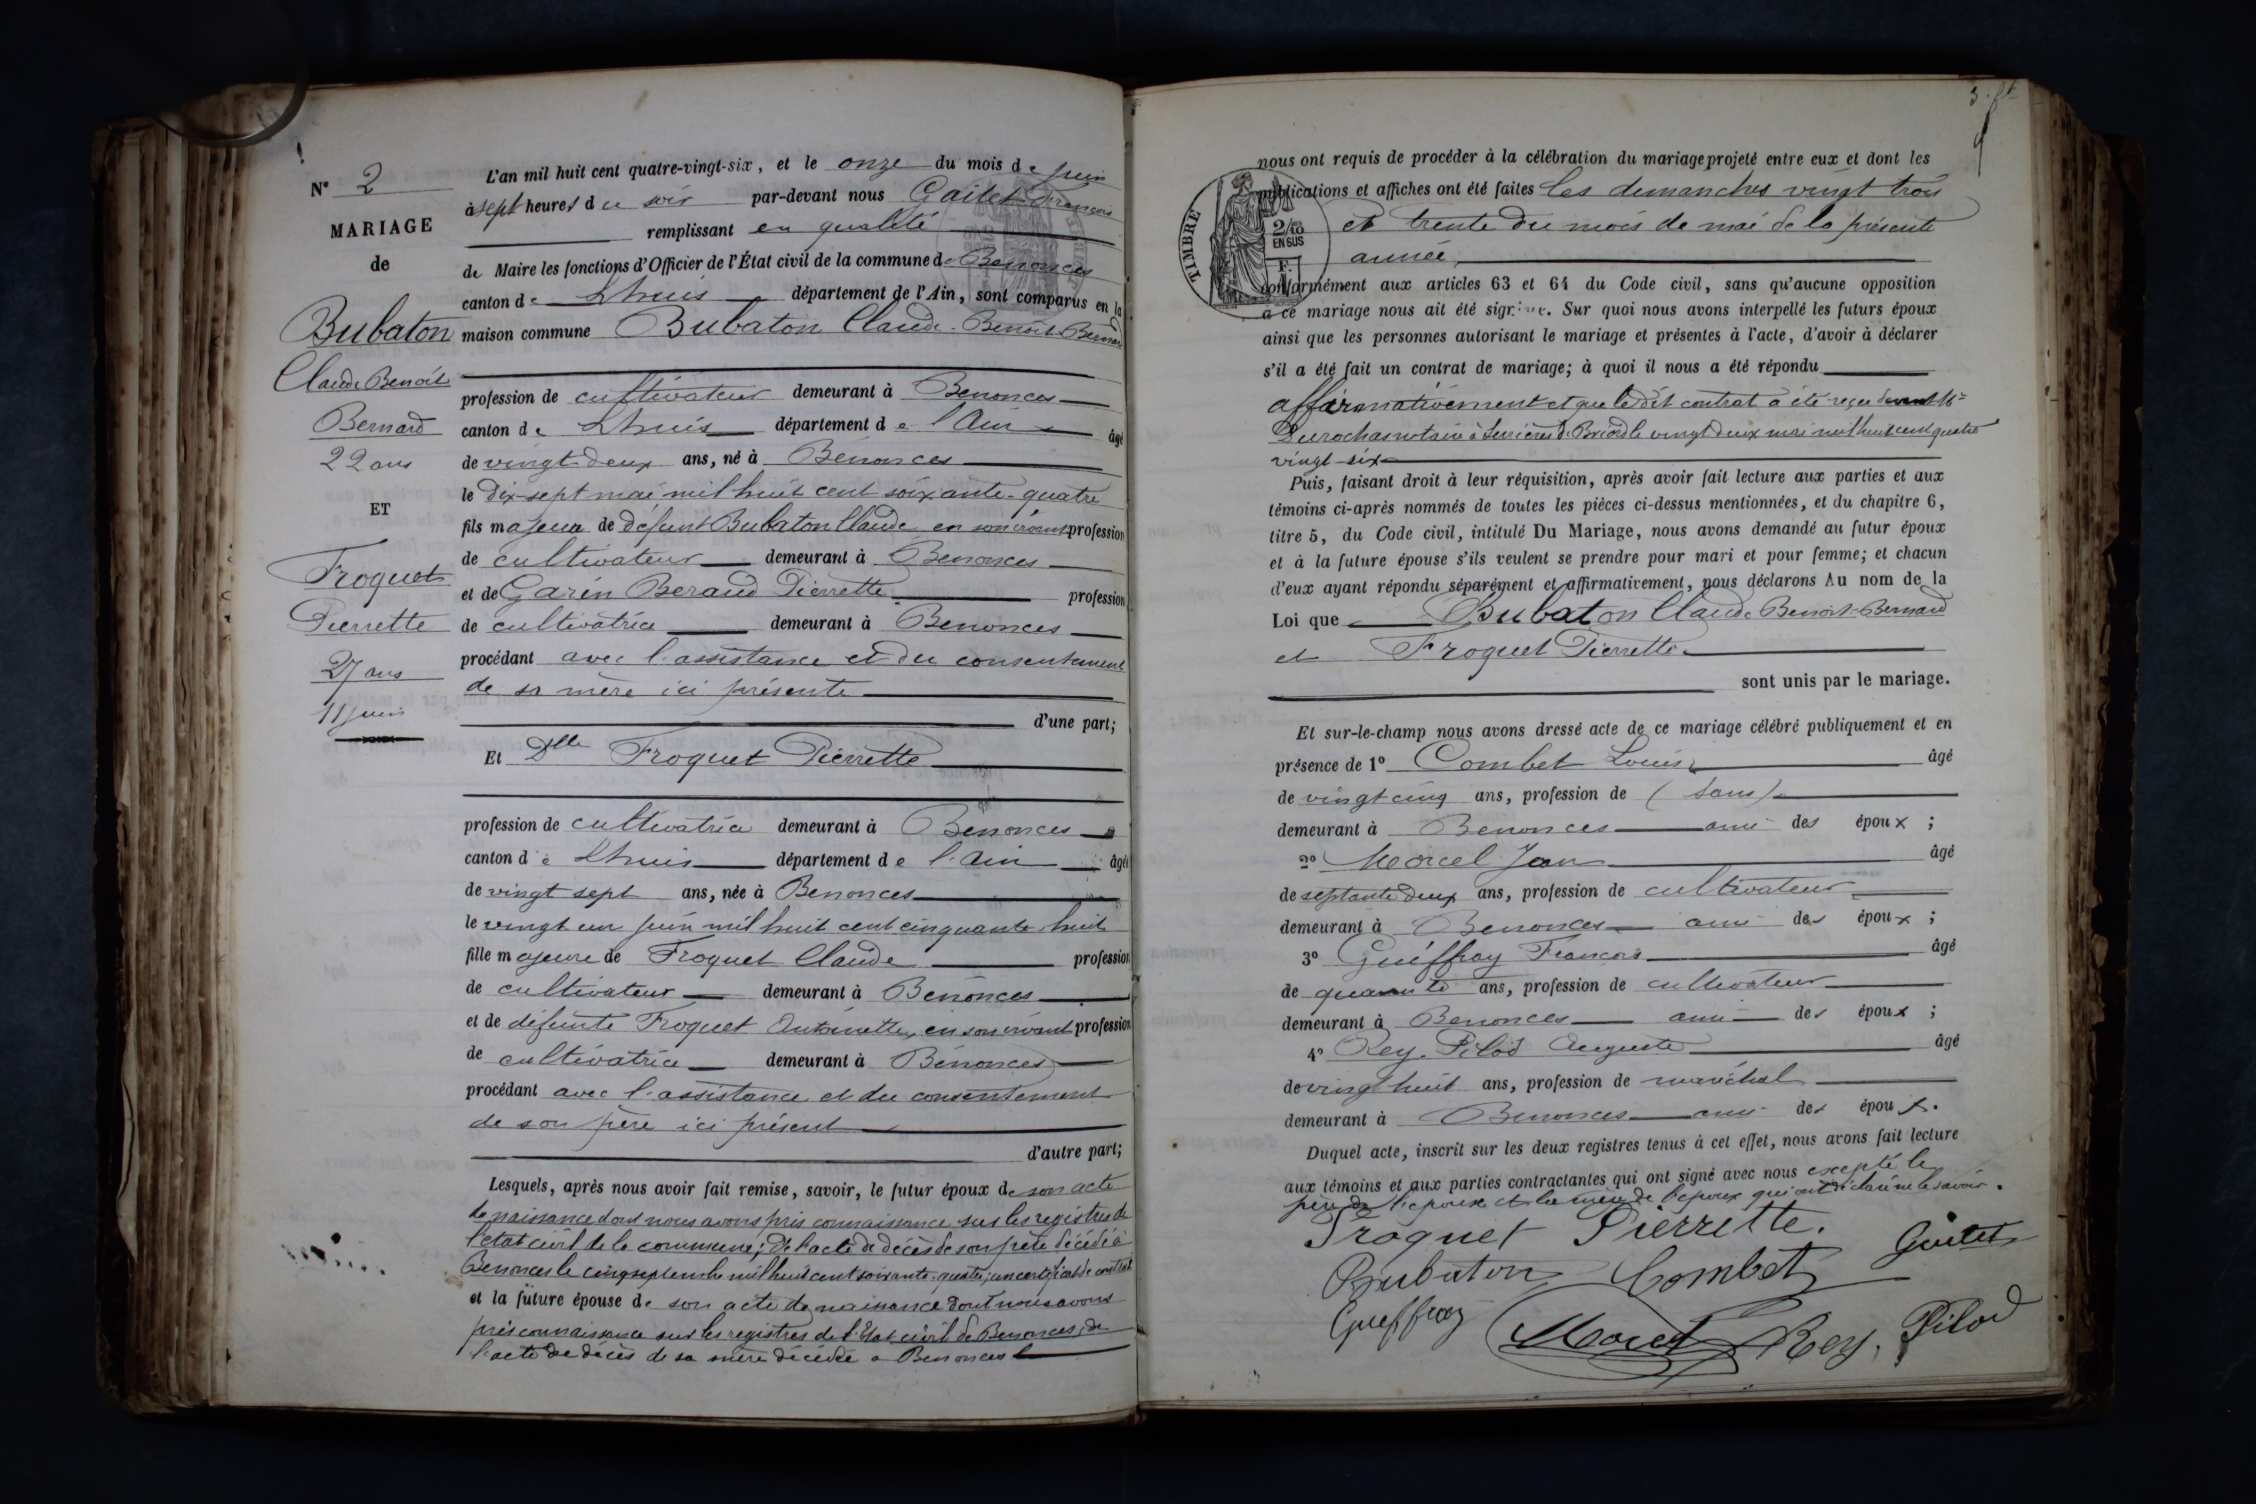 N° 2
MARIAGE
de
Bubaton
Claude Benoit
Bernard
22 ans
ET
Froquet
Pierrette
27 ans
11 juin
L'an mil huit cent quatre-vingt-six, et le onze du mois de juin
à sept heures du soir par-devant nous Gaitet François
remplissant en qualité
de Maire les fonctions d'Officier de l'État civil de la commune de Benonces
canton de Lhuis département de l'Ain, sont comparus en la
maison commune Bubaton Claude Benoit Bernard
profession de cultivateur demeurant à Benonces
canton de Lhuis département de l'Ain âgé
de vingt-deux ans, né à Bénonces
le dix-sept mai mil huit cent soixante-quatre
fils majeur de défunt Bubaton Claude en son vivant profession
de cultivateur demeurant à Benonces
et de Garin Beraud Pierrette profession
de cultivatrice demeurant à Benonces
procédant avec l'assistance et du consentement
de sa mère ici présente
d'une part;
Et Dlle Froquet Pierrette
profession de cultivatrice demeurant à Benonces
canton de Lhuis département de l'Ain âgée
de vingt sept ans, née à Benonces
le vingt un juin mil huit cent cinquante huit
fille majeure de Froquet Claude profession
de cultivateur demeurant à Bénonces
et de défunte Froquet Antoinette, en son vivant profession
de cultivatrice demeurant à Bénonces
procédant avec l'assistance et du consentement
de son père ici présent
d'autre part;
Lesquels, après nous avoir fait remise, savoir, le futur époux de son acte
de naissance dont nous avons pris connaissance sur les registres de
l'état civil de la commune; De l'acte de décès de son père décédé à
Benonces le cinq septembre mil huit cent soixante-quatre; un certificat de contrat
et la future épouse de son acte de naissance dont nous avons
pris connaissance sur les registres de l'Etat civil de Benonces, de
l'acte de décès de sa mère décédée a Benonces l
nous ont requis de procéder à la célébration du mariage projeté entre eux et dont les
publications et affiches ont été faites les dimanches vingt trois
et trente du mois de mai de la présente
année,
TIMBRE
2/10
EN SUS
F.
conformément aux articles 63 et 64 du Code civil, sans qu'aucune opposition
à ce mariage nous ait été signifiée. Sur quoi nous avons interpellé les futurs époux
ainsi que les personnes autorisant le mariage et présentes à l'acte, d'avoir à déclarer
s'il a été fait un contrat de mariage; à quoi il nous a été répondu
affirmativement et que le dit contrat a été reçu devant Me
Durochas notaire à Serrières de Briord le vingt deux mai mil huit cent quatre
vingt-six
Puis, faisant droit à leur réquisition, après avoir fait lecture aux parties et aux
témoins ci-après nommés de toutes les pièces ci-dessus mentionnées, et du chapitre 6,
titre 5, du Code civil, intitulé Du Mariage, nous avons demandé au futur époux
et à la future épouse s'ils veulent se prendre pour mari et pour femme; et chacun
d'eux ayant répondu séparément et affirmativement, nous déclarons Au nom de la
Loi que Bubaton Claude Benoit-Bernard
et Froquet Pierrette
sont unis par le mariage.
Et sur-le-champ nous avons dressé acte de ce mariage célébré publiquement et en
présence de 1° Combet Louis âgé
de vingt cinq ans, profession de (sans)
demeurant à Benonces ami des époux ;
2° Morcel Jean âgé
de septante deux ans, profession de cultivateur
demeurant à Benonces ami des époux ;
3° Gueffray François âgé
de quarante ans, profession de cultivateur
demeurant à Benonces ami des époux ;
4° Rey-Pilod Auguste âgé
de vingt huit ans, profession de maréchal
demeurant à Benonces ami des époux.
Duquel acte, inscrit sur les deux registres tenus à cet effet, nous avons fait lecture
aux témoins et aux parties contractantes qui ont signé avec nous excepté le
père de l'epouse et la mère de l'epoux qui ont déclaré ne le savoir.
Froquet Pierrette.
Gaitet
Bubaton Combet
Gueffray
Morcel Rey. Pilod